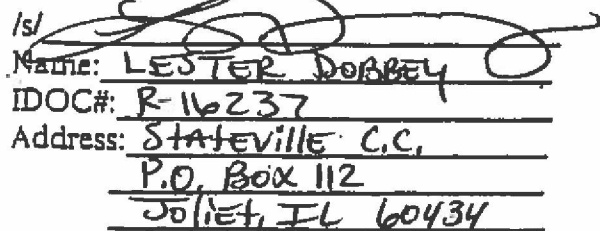 /s/
Name: LESTER DOBBEY
IDOC#: R-16237
Address: StAtEVillE C.C.
P.O. Box 112
JoliEt, IL 60434